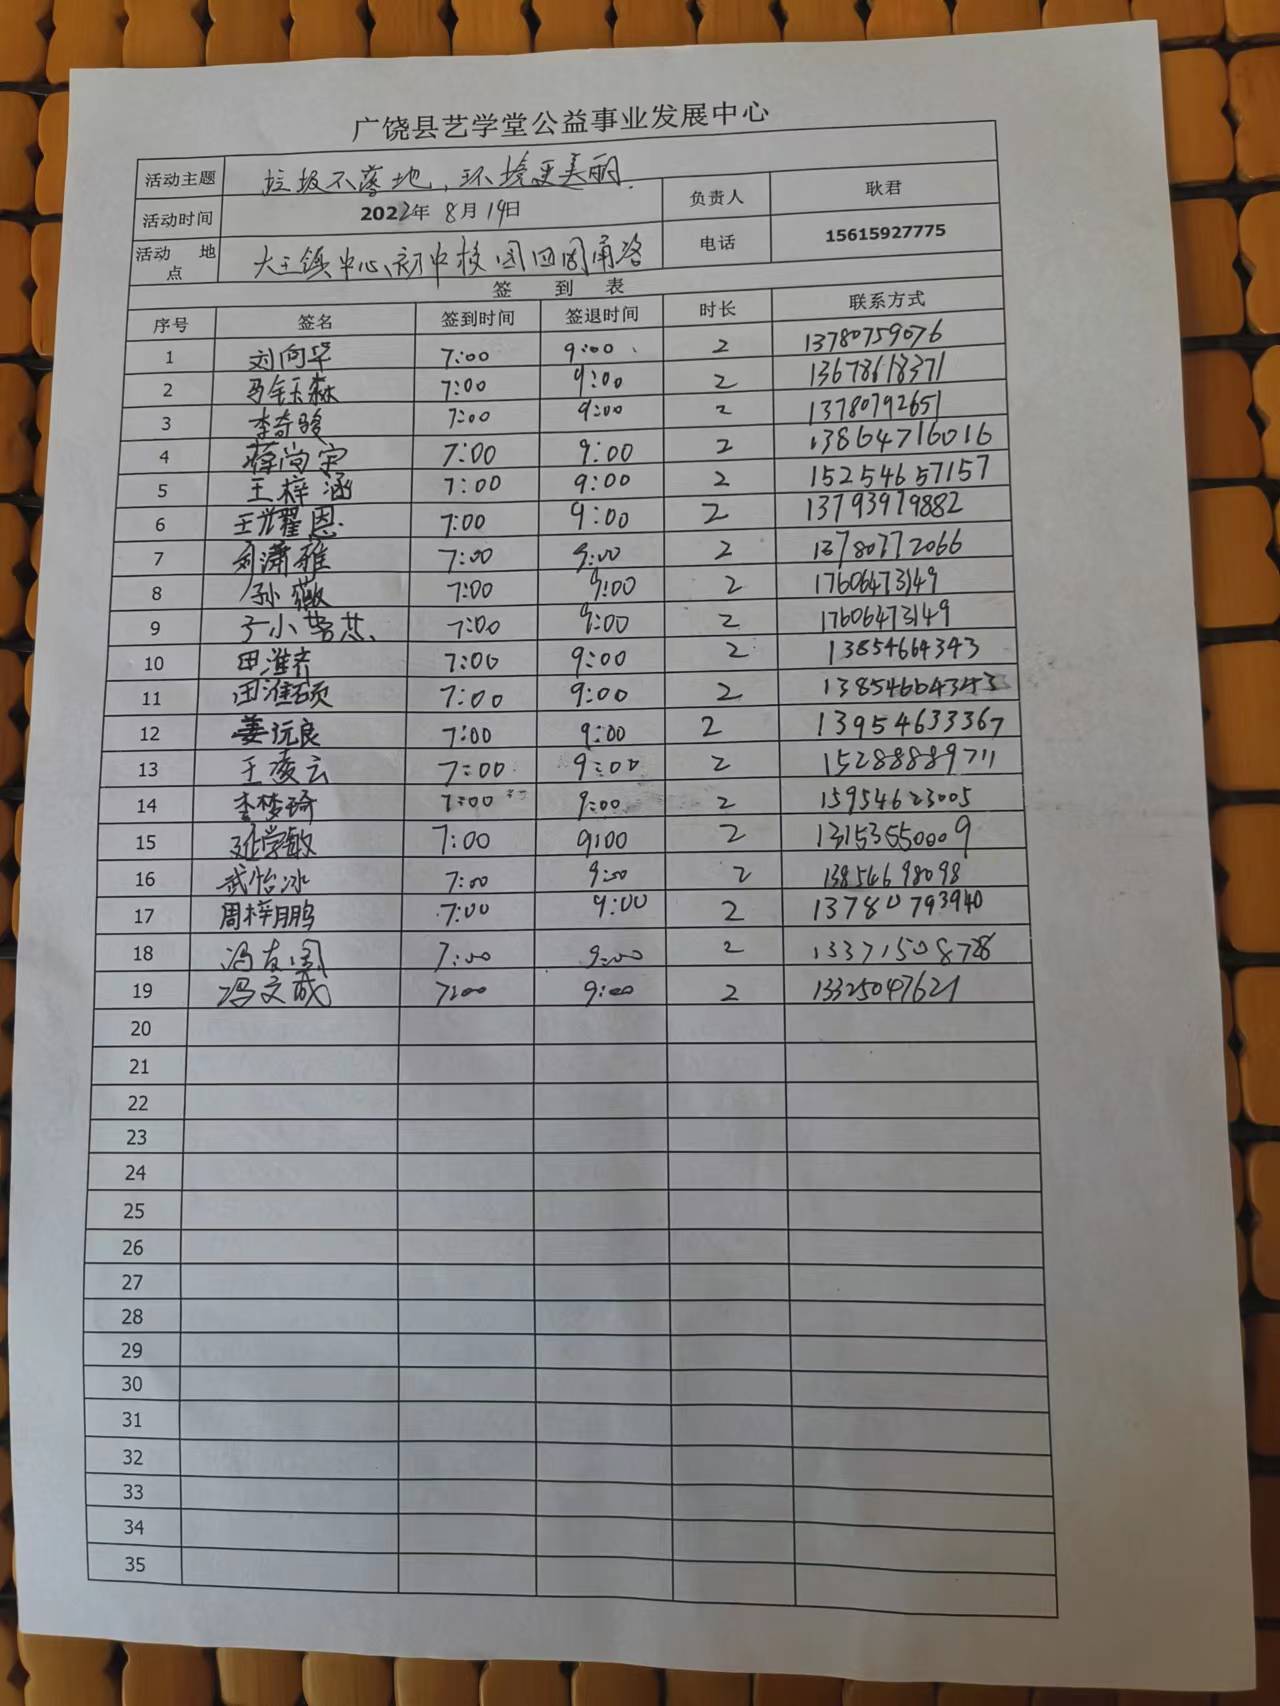 广饶县艺学堂公益事业发展中心
活动主题 垃圾不落地，环境更美丽.
活动时间 2022年 8月19日 负责人 耿君
活动 地点 大王镇中心初中校园四周角落 电话 15615927775
签 到 表
序号 签名 签到时间 签退时间 时长 联系方式
1 刘向华 7:00 9:00 2 13780759076
2 马钰森 7:00 9:00 2 13678618371
3 李奇骏 7:00 9:00 2 13780792651
4 蒋尚宗 7:00 9:00 2 13864716016
5 王梓涵 7:00 9:00 2 15254657157
6 王耀恩 7:00 9:00 2 13793979882
7 刘潇雅 7:00 9:00 2 13780772066
8 孙薇 7:00 9:00 2 17606473149
9 7:00 9:00 2 17606473149
10 田淮齐 7:00 9:00 2 13854664343
11 田淮硕 7:00 9:00 2 13854664343
12 姜沅良 7:00 9:00 2 13954633367
13 王凌云 7:00 9:00 2 15288889711
14 李梦琦 7:00 9:00 2 15954623005
15 延学敏 7:00 9:00 2 13153550009
16 武怡冰 7:00 9:00 2 13854698098
17 周梓鹏 7:00 9:00 2 13780793940
18 冯友 7:00 9:00 2 13371508728
19 冯文成 7:00 9:00 2 13325047621
20
21
22
23
24
25
26
27
28
29
30
31
32
33
34
35